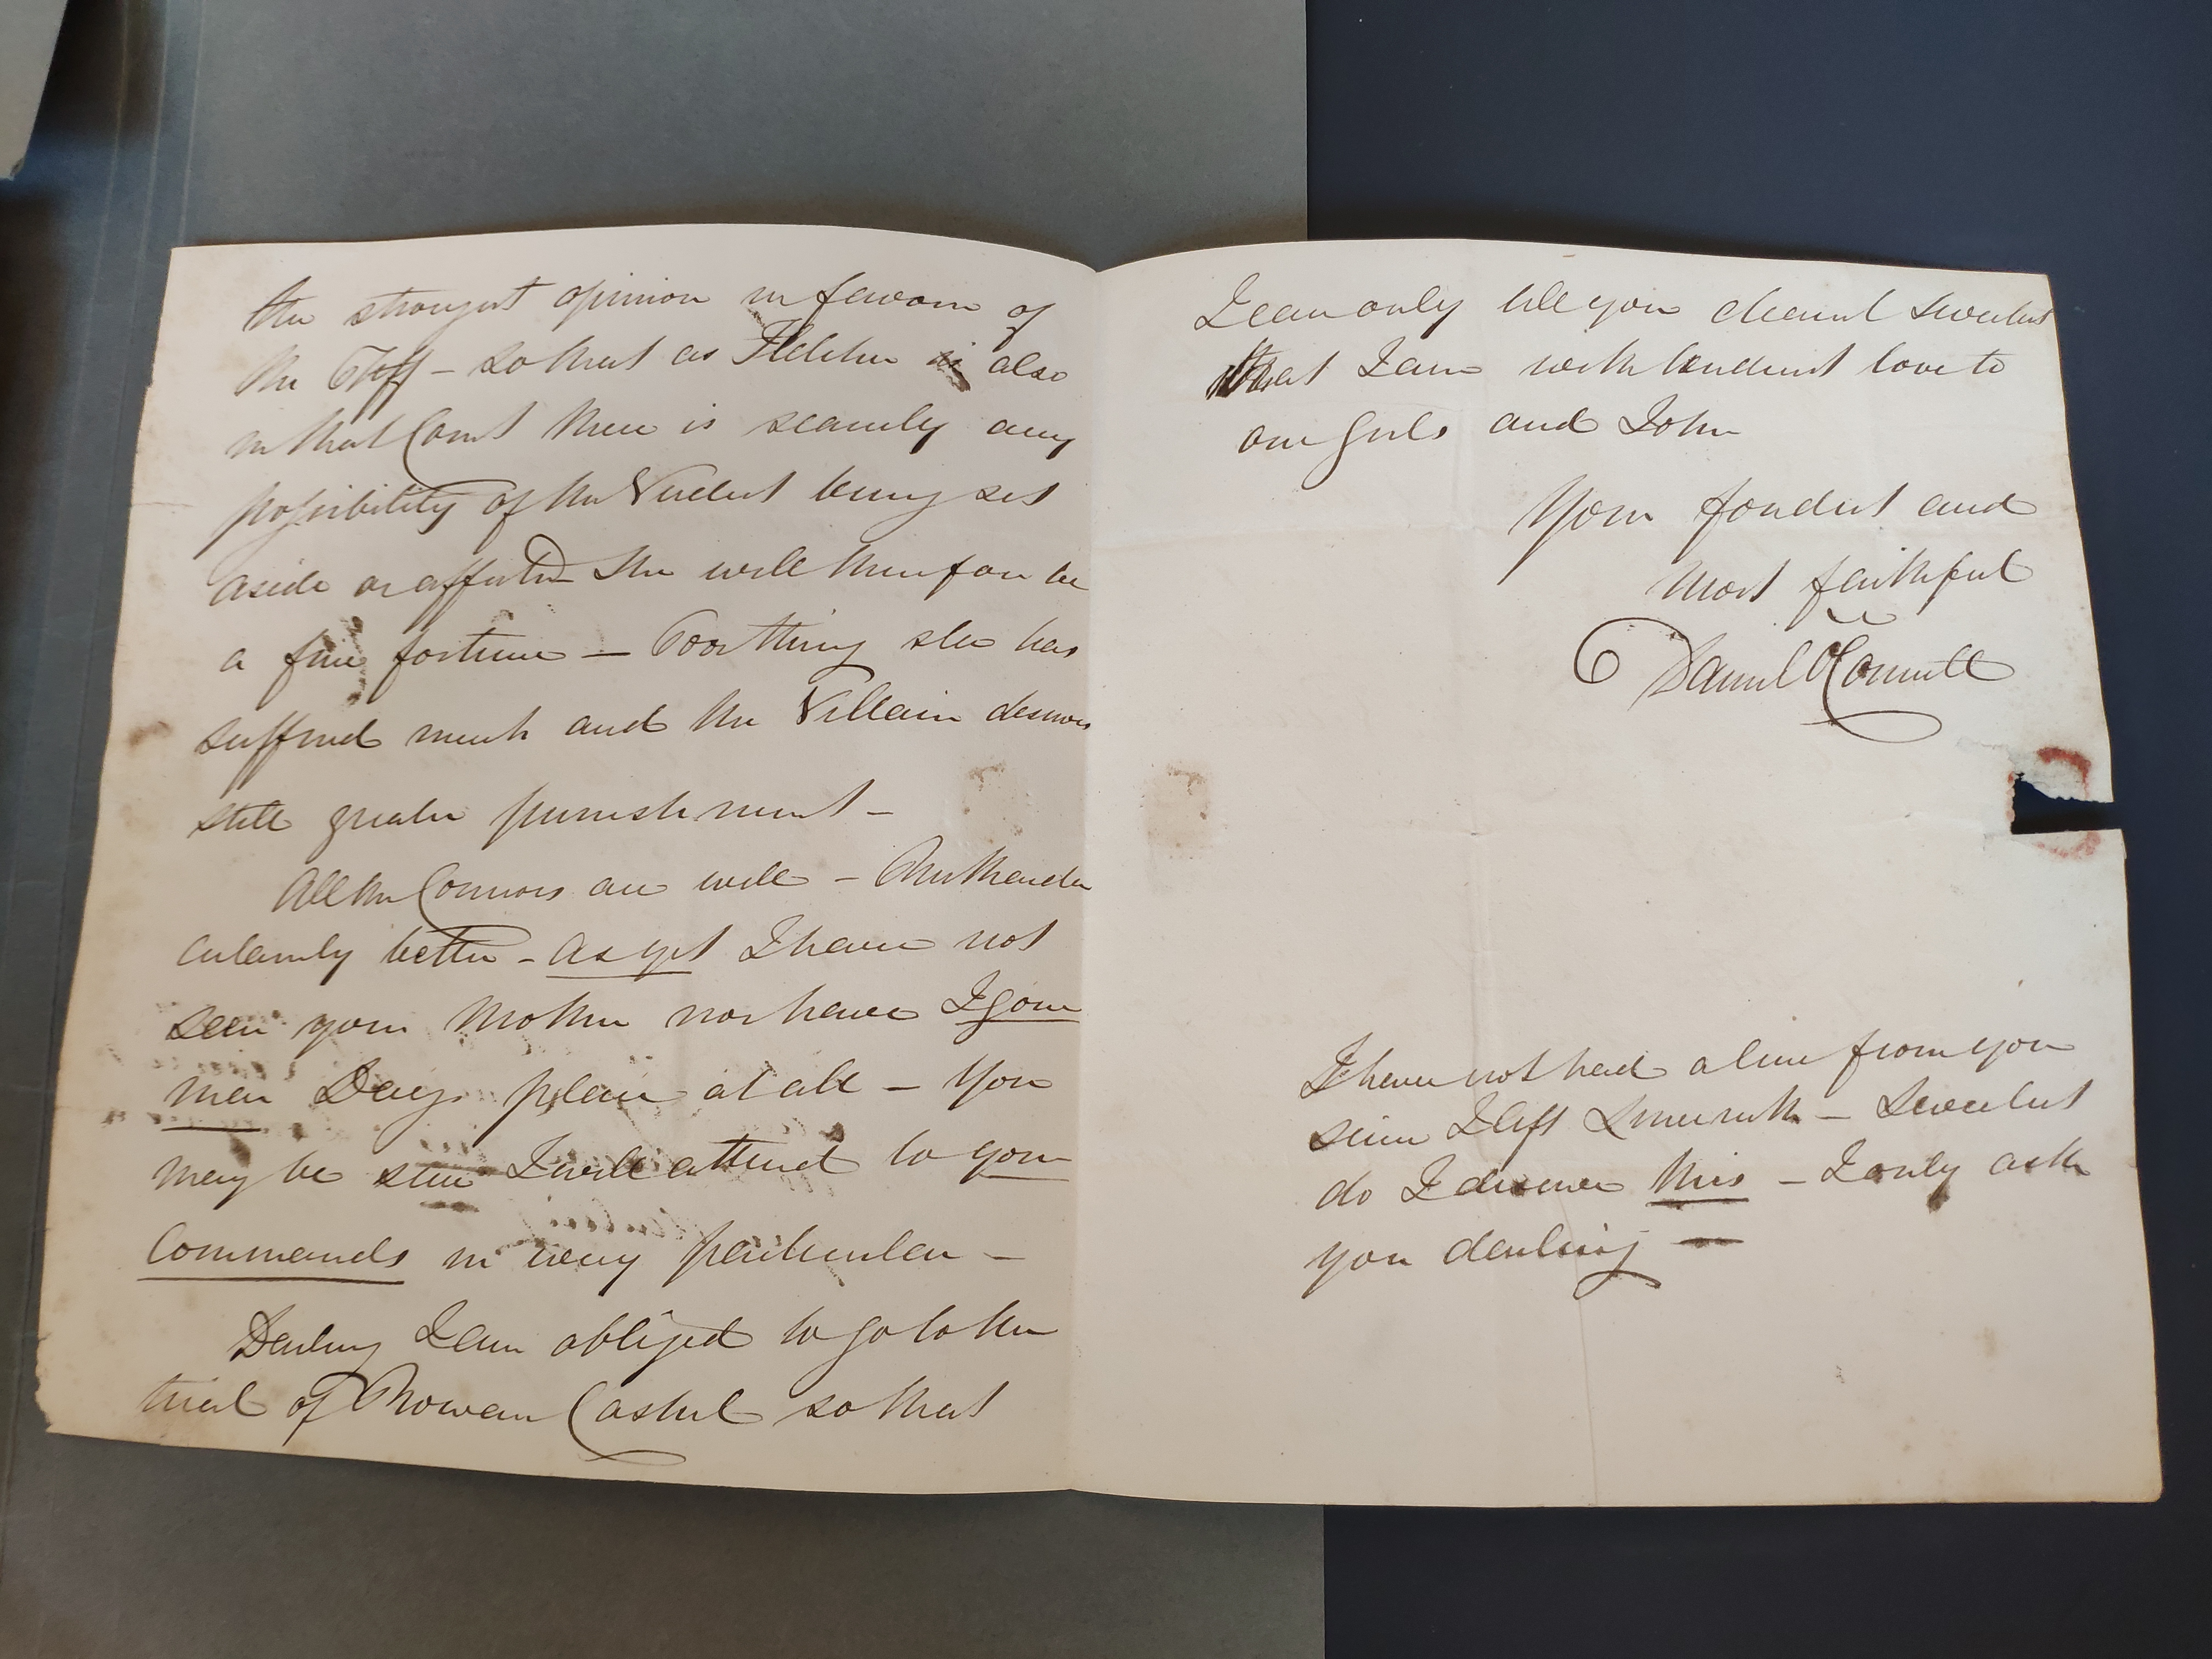 the strongest opinion in favour of
the Plff – so that as Fletcher is also
in that Court there is scarcely any
possibility of the Verdict being set
aside or affected She will therefore be
a fine fortune – Poor thing she has
suffered much and the Villain deserves
still greater punishment –
All the Connors are well –
certainly better – as yet I have not
seen your Mother nor have I gone
near Days place at all – You
may be sure I will attend to your
Commands in every particular –
Darling I am obliged to go to the
trial of Rowan Cashel so that
I can only tell you dearest Sweetest
that I am with tenderest love to
our Girls and John
Your fondest and
Most faithful
Daniel O'Connell
I have not had a line from you
since I left Limerick – Sweetest
do I deserve this – I only ask
you darling –